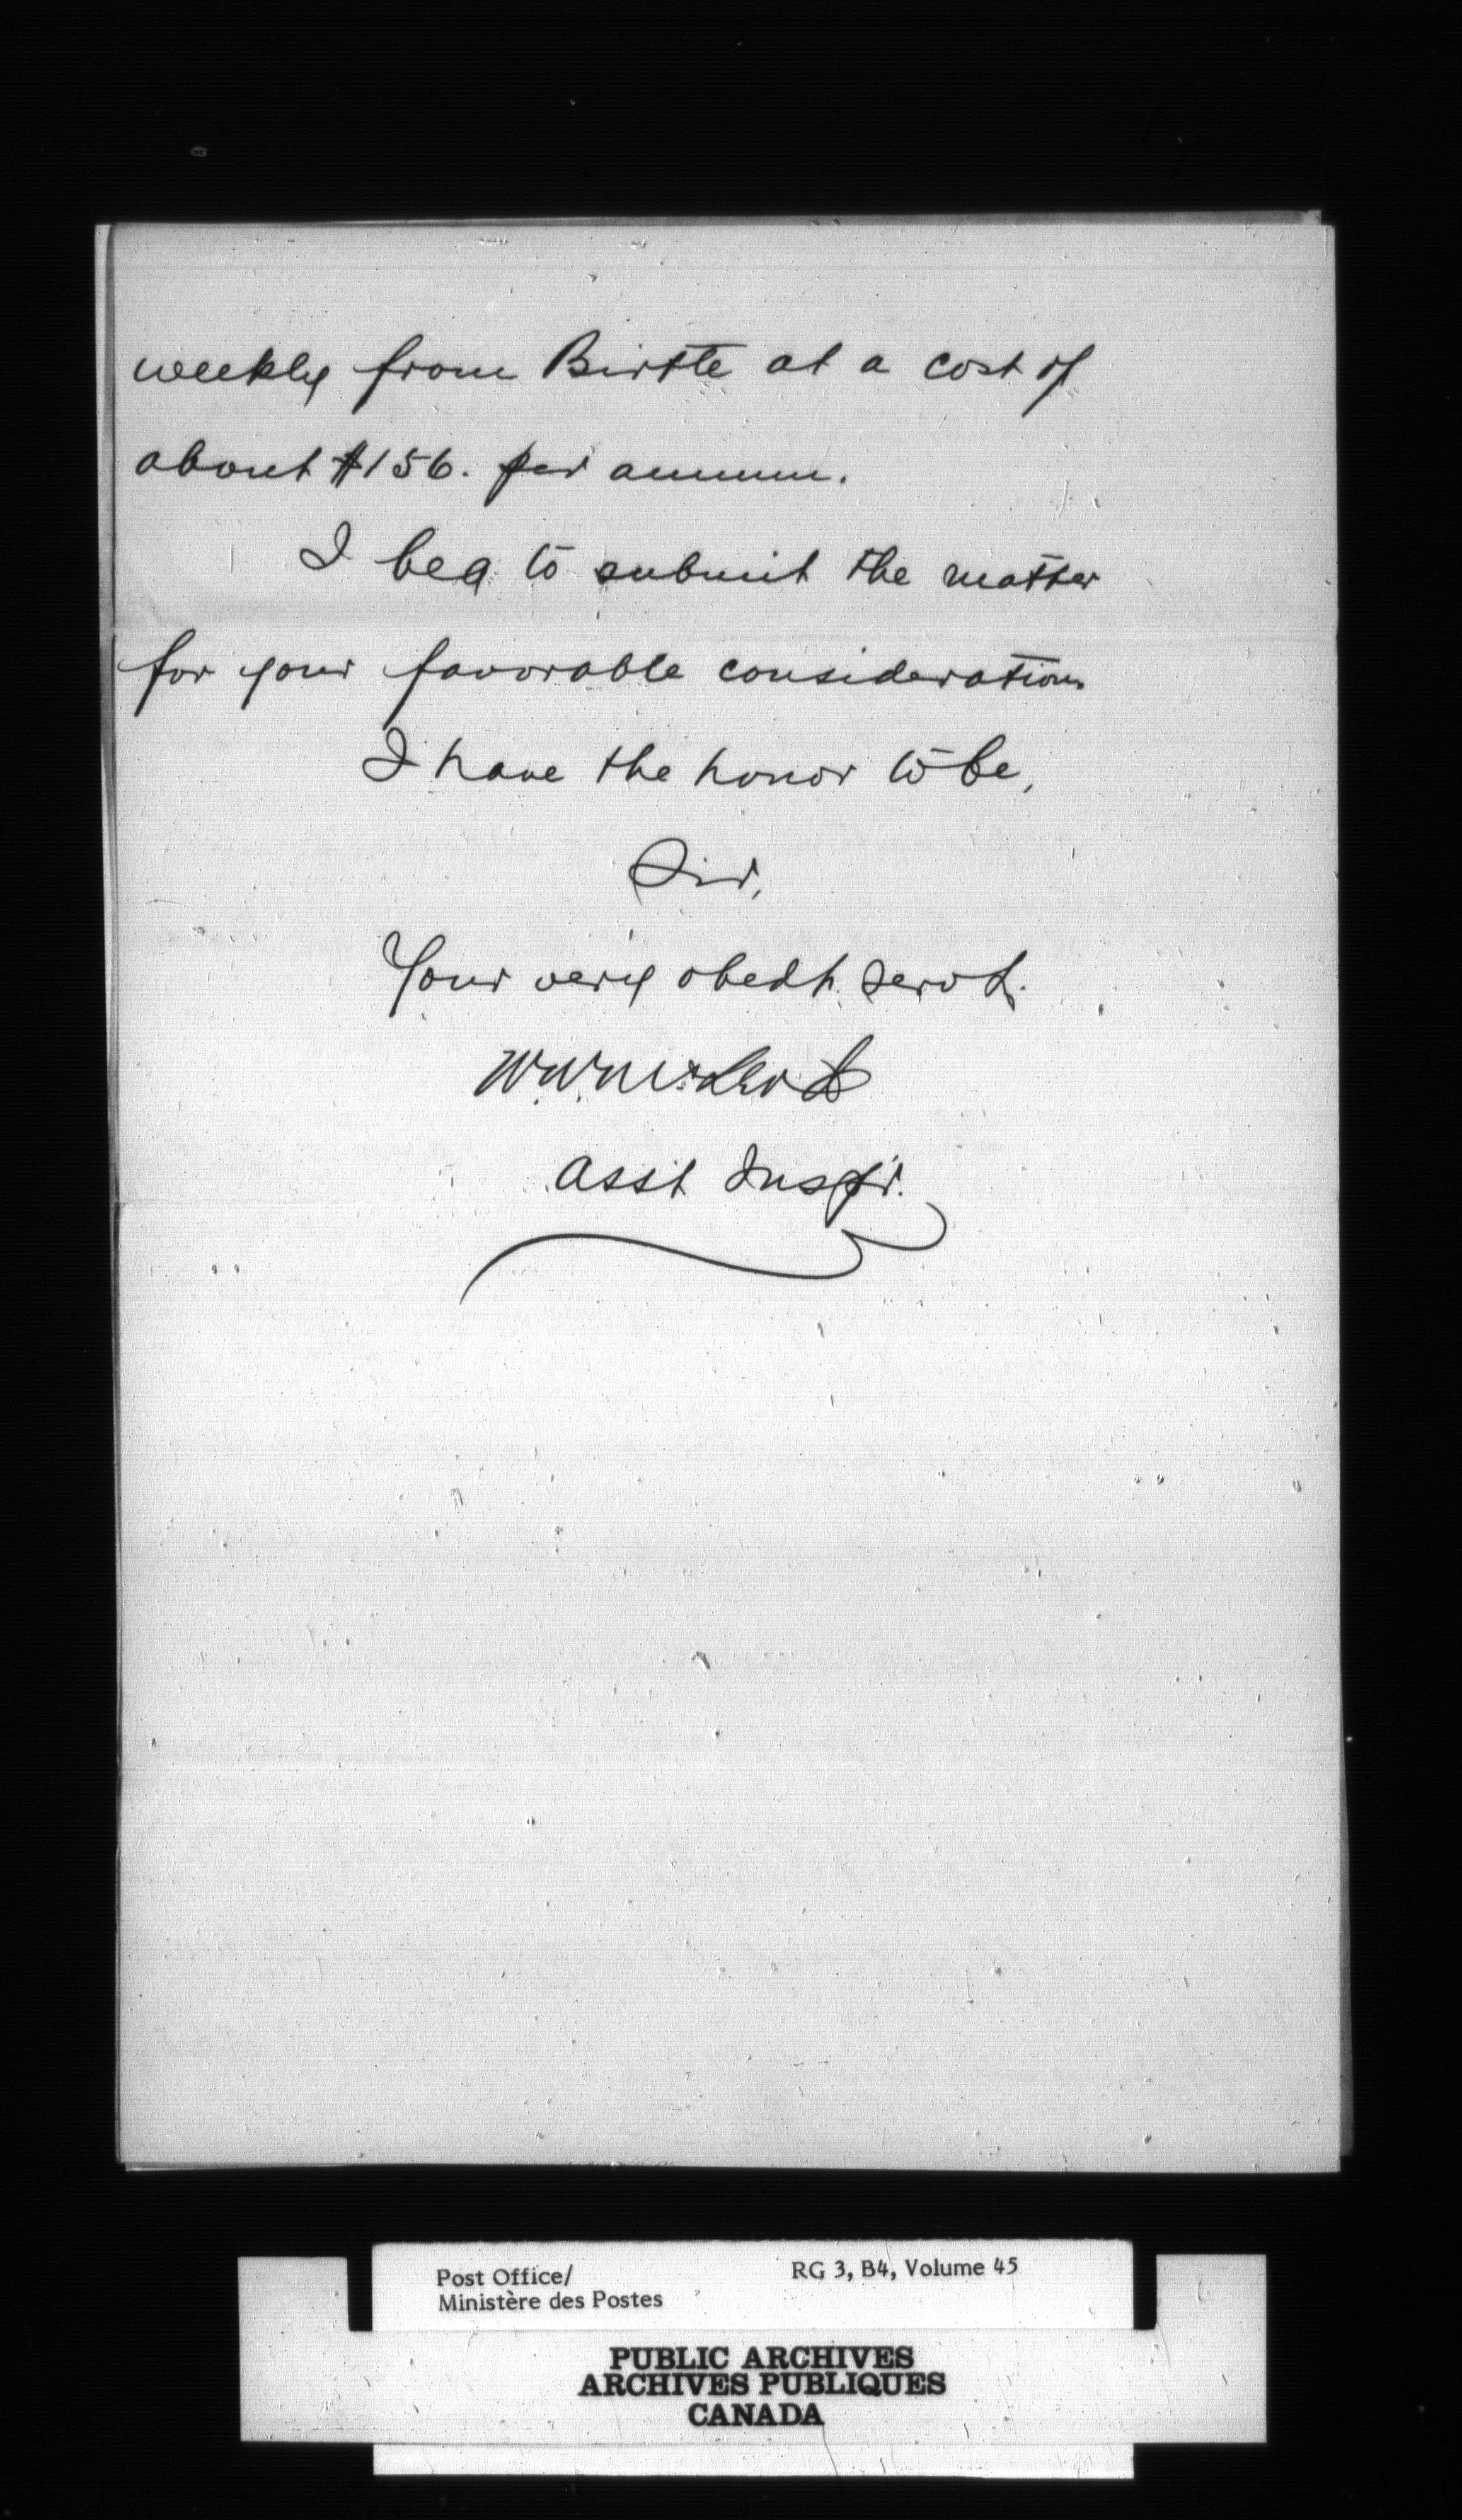 weekly from Birtle at a cost of
about $156. per annum.
I beg to submit the matter
for your favorable consideration
I have the honor to be,
Sir,
Your very obedt. servt.
W. W. McLeod
Asst Inspr.
Post Office/
Ministère des Postes
RG 3, B4, Volume 45
PUBLIC ARCHIVES
ARCHIVES PUBLIQUES
CANADA